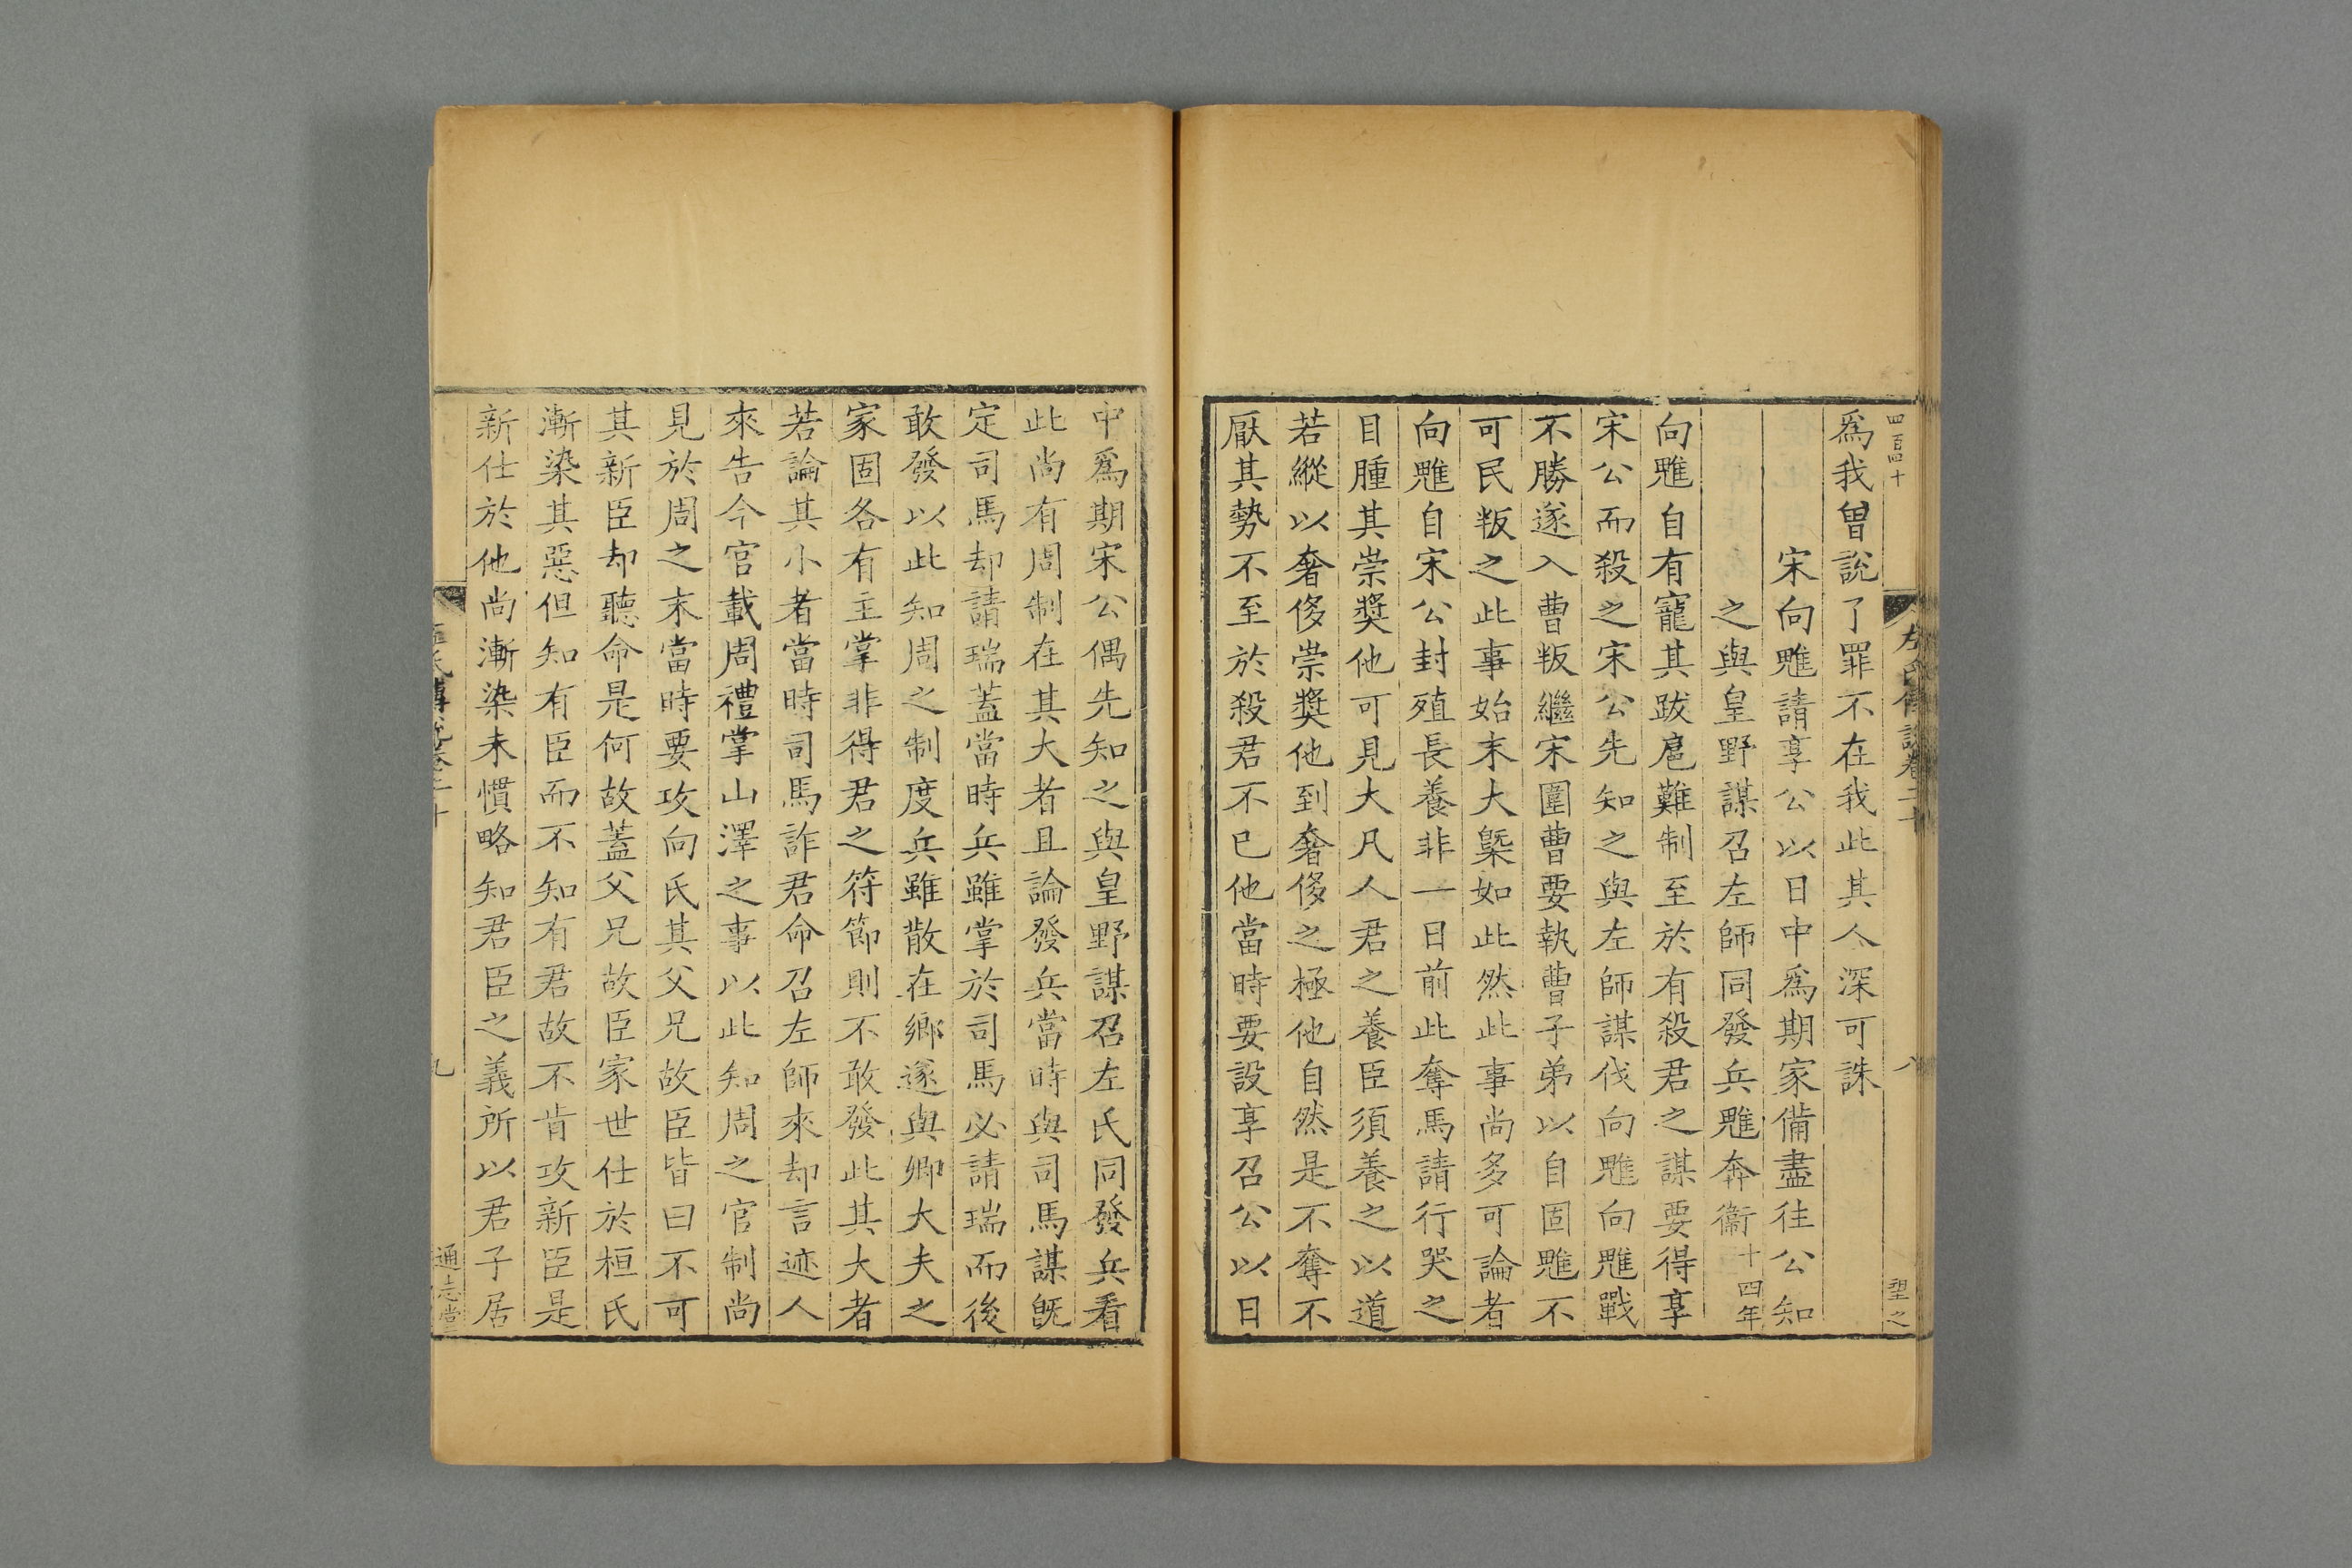 四百四十
左氏傳說卷二十
八
望之
爲我曾說了罪不在我此其人深可誅
宋向魋請享公以日中爲期家備盡往公知
之與皇野謀召左師同發兵魋奔衞十四年
向魋自有寵其跋扈難制至於有殺君之謀要得享
宋公而殺之宋公先知之與左師謀伐向魋向魋戰
不勝遂入曹叛繼宋圍曹要執曹子弟以自固魋不
可民叛之此事始末大槩如此然此事尚多可論者
向魋自宋公封殖長養非一日前此奪馬請行哭之
目腫其崇奬他可見大凡人君之養臣須養之以道
若縱以奢侈崇奬他到奢侈之極他自然是不奪不
厭其勢不至於殺君不已他當時要設享召公以日
中爲期宋公偶先知之與皇野謀召左氏同發兵看
此尚有周制在其大者且論發兵當時與司馬謀旣
定司馬却請瑞蓋當時兵雖掌於司馬必請瑞而後
敢發以此知周之制度兵雖散在鄉遂與卿大夫之
家固各有主掌非得君之符節則不敢發此其大者
若論其小者當時司馬詐君命召左師來却言迹人
來告今官載周禮掌山澤之事以此知周之官制尚
見於周之末當時要攻向氏其父兄故臣皆曰不可
其新臣却聽命是何故蓋父兄故臣家世仕於桓氏
漸染其惡但知有臣而不知有君故不肯攻新臣是
新仕於他尚漸染未慣略知君臣之義所以君子居
九
通志堂